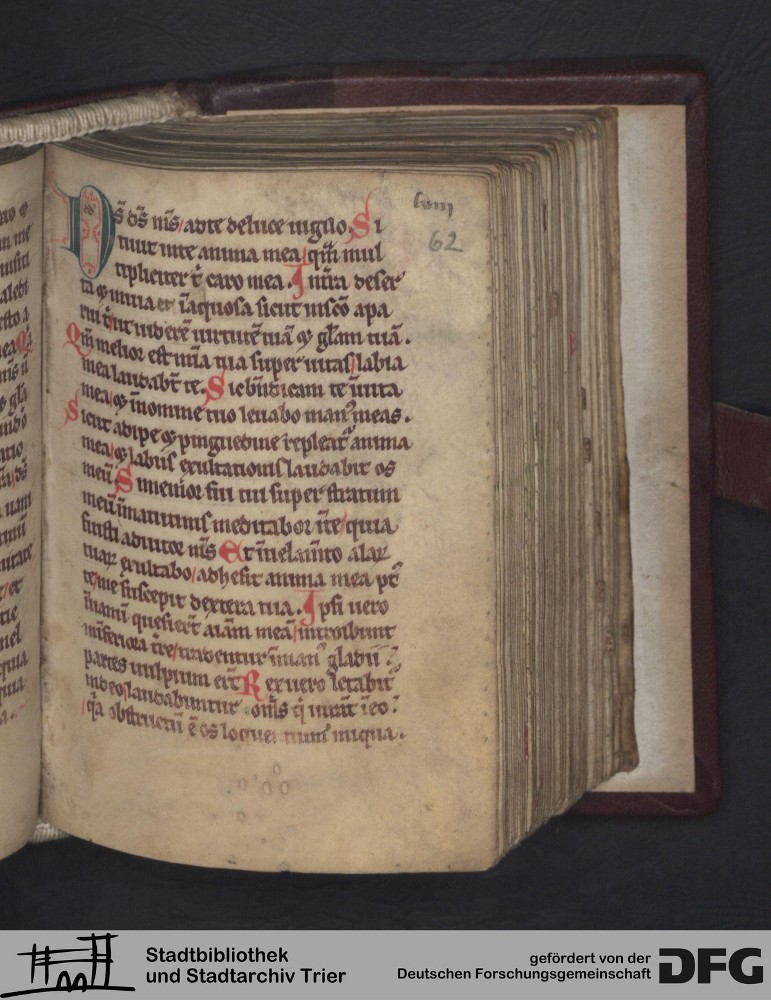 lxiii
62
Ds̄ ds̄ ms̄ adte deluce uigilo. Si
tiuit inte anima mea qm̄ mul
tipliciter t̄ caro mea. In tr̄a deser
ta ⁊ inuia et īaquosa sicut insc̄o apa
rui t̄ ut uiderē uirtutē tuā ⁊ gl̄am tuā.
Qm̄ melior est mīa tua super uitas labia
mea laudabt̄ te. Sic bn̄dicam te ī uita
mea ⁊ innomine tuo leuabo man᷒ meas.
Sicut adipe ⁊ pinguedine repleat᷒ anima
mea ⁊ labiis exultationis laudabit os
meū Si memor fui tui super stratum
meū īmatutinis meditabor īte quia
fuisti adiutor ms̄ Et īuelam̄to alaꝝ
tuaꝝ exultabo adhesit anima mea pt̄
te me suscepit dextera tua. Ipsi uero
īuanū quesiert̄ aīam meā introibunt
īnferiora tr̄e tradentur īman᷒ gladii
partes uulpium ert̄ Rex uero letabit᷒
indeo laudabuntur om̄s q̄ iurāt īeo.
q̄a obstructū ē os loquentium iniqua.
Stadtbibliothek
und Stadtarchiv Trier
gefördert von der
Deutschen Forschungsgemeinschaft
DFG